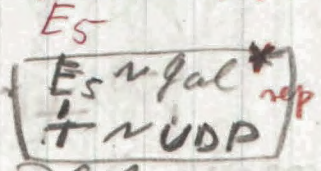 E5
E5 ~ gal*
rep
+ ~ UDP